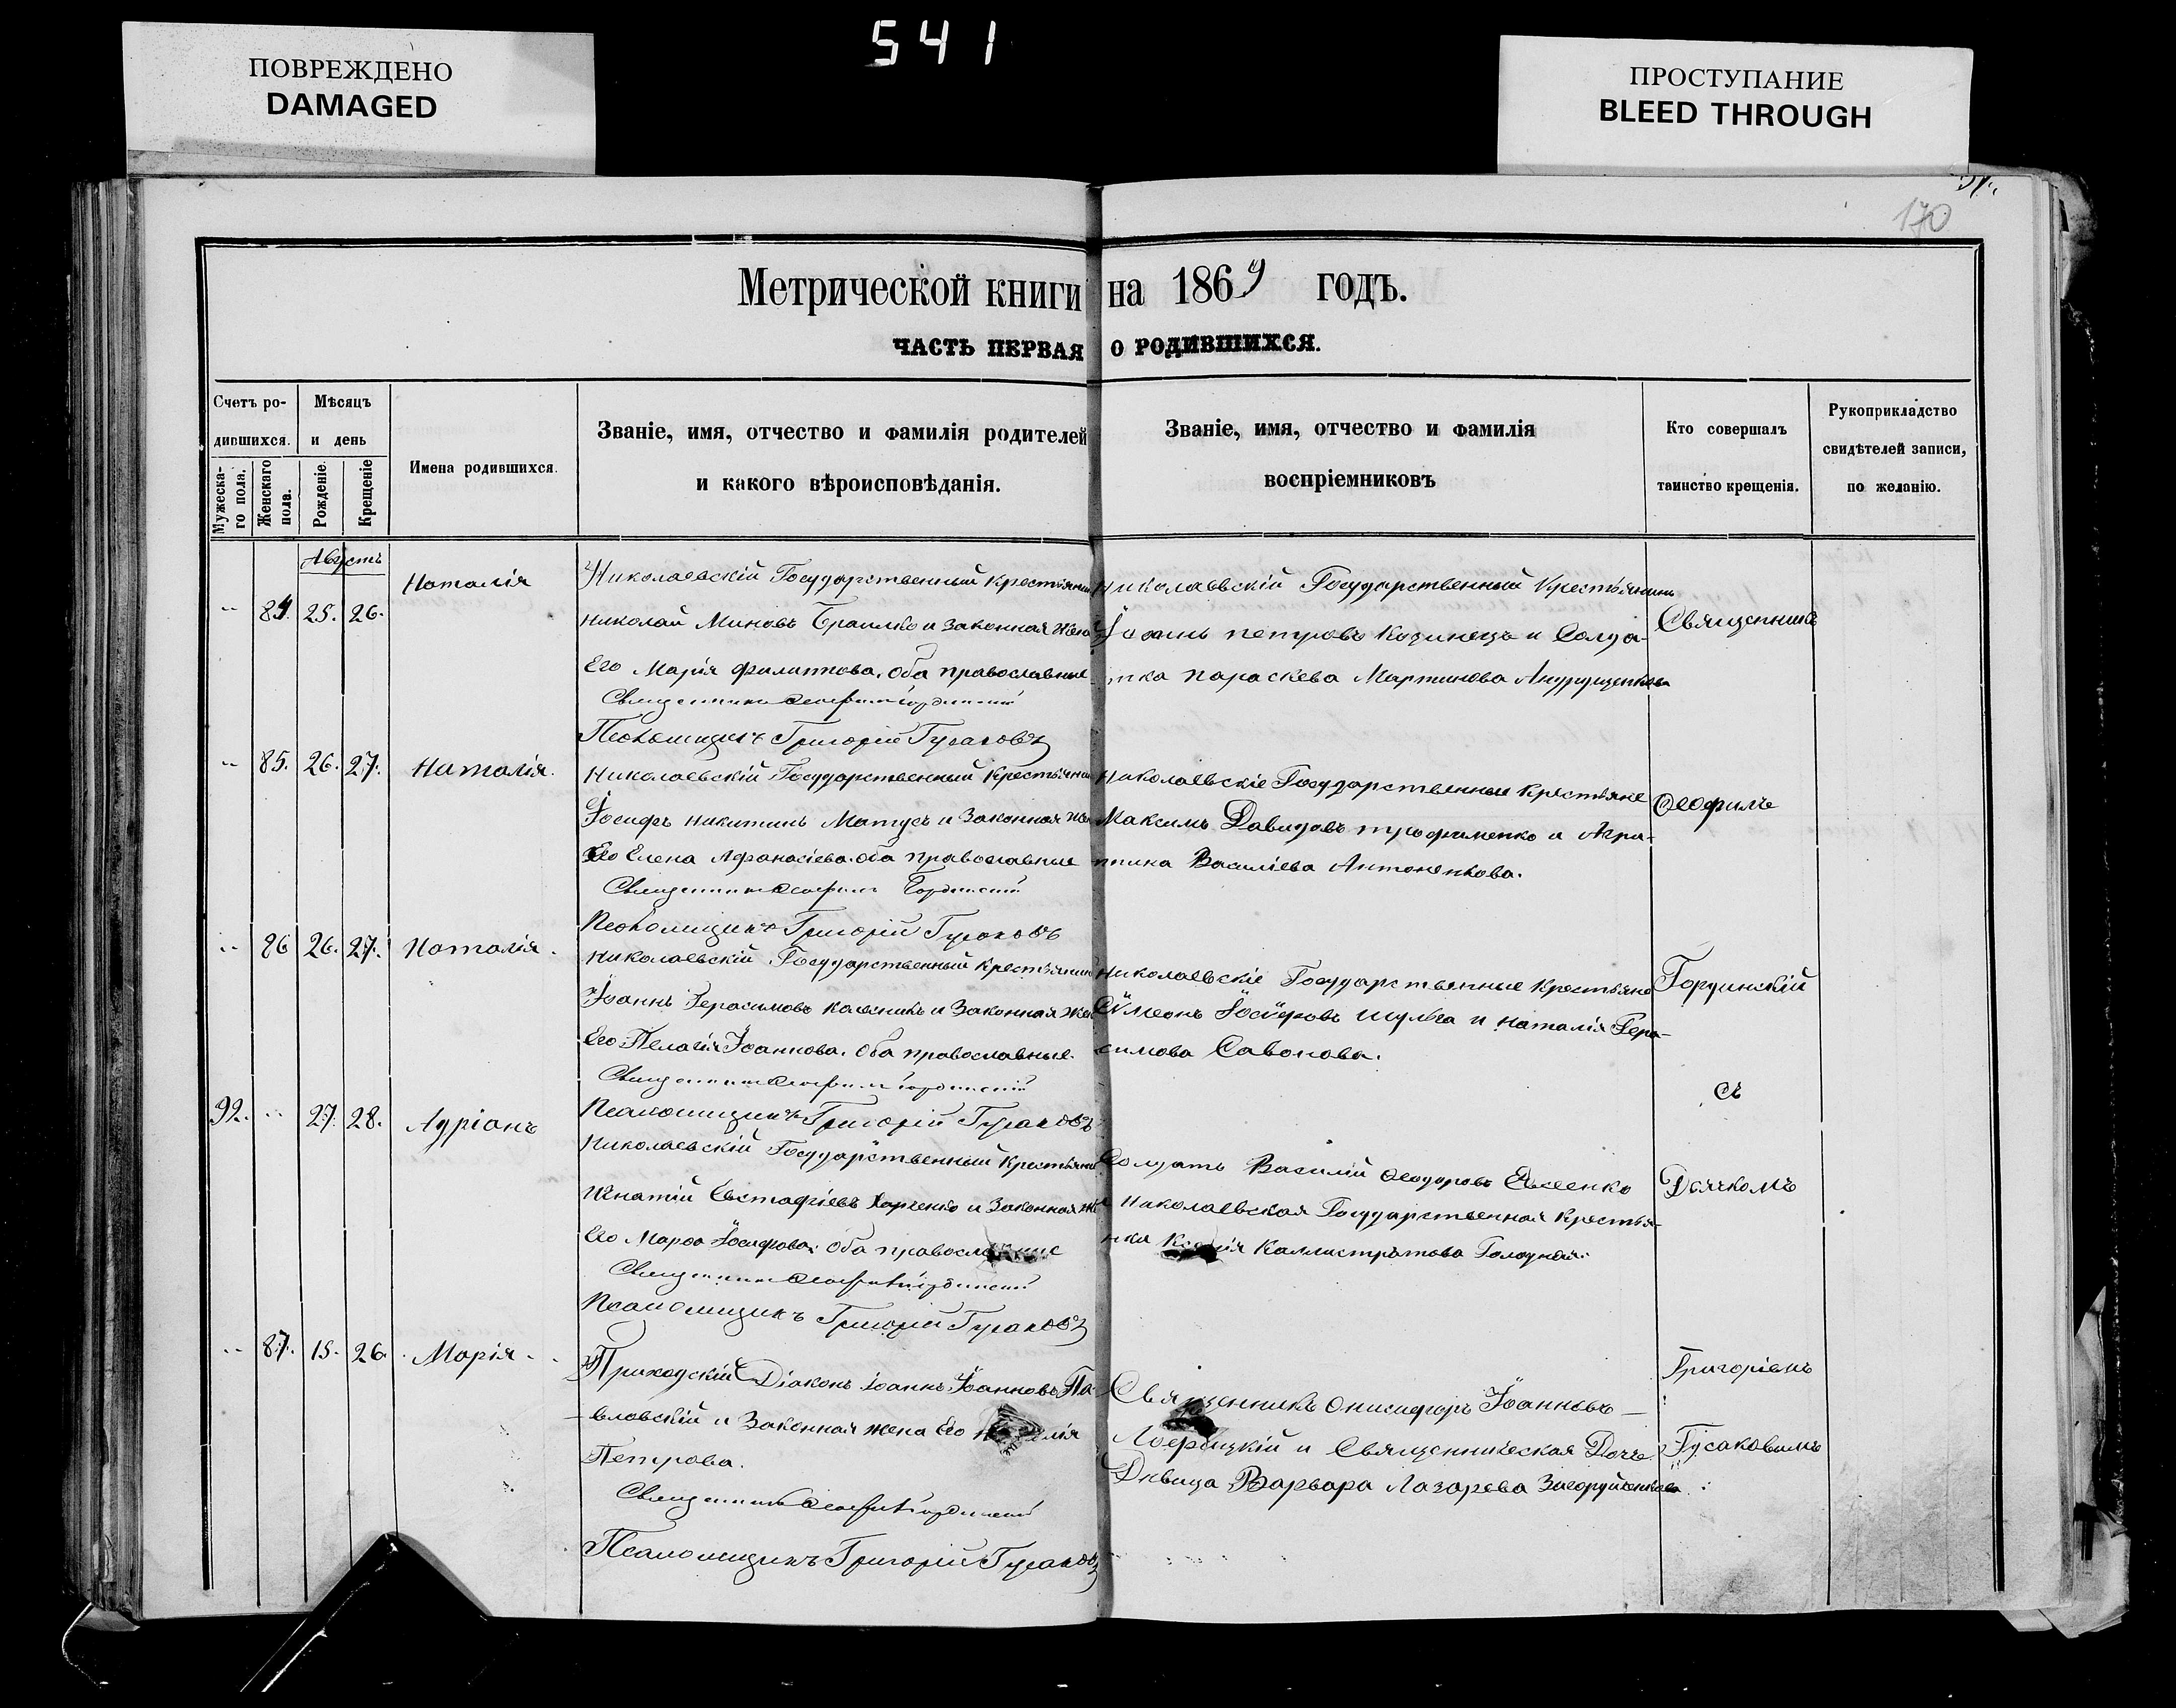 541
ПОВРЕЖДЕНО
DAMAGED
ПРОСТУПАНИЕ
BLEED THROUGH
170
Метрической книги на 1869 годъ.
ЧАСТЬ ПЕРВАЯ О РОДИВШИХСЯ.
Счетъ ро-
дившихся.
Мужеска-
го пола.
Женскаго
пола.
Мѣсяцъ
и день
Рожденіе.
Крещеніе
Имена родившихся.
Званіе, имя, отчество и фамилія родителей
и какого вѣроисповѣданія.
Званіе, имя, отчество и фамилія
воспріемниковъ
Кто совершалъ
таинство крещенія.
Рукоприкладство
свидѣтелей записи,
по желанію.
Августъ
84. 25. 26. Наталія
Николаевскій Государственный Крестьянин
Николай Миновъ Браилко и законная жена
Его Марія Филиппова. Оба православные
Священникъ Ѳеофилъ Гординскій
Псаломщикъ Григорій Гусаковъ
Николаевскій Государственный Крестьянинъ
Іоаннъ Петровъ Кодинецъ и Солда-
тка Параскева Мартинова Андрущенкова
Священникъ
85. 26. 27. Наталія.
Николаевскій Государственный Крестьянин
Іосифъ Никитинъ Матусъ и Законная же
Его Елена Афанасіева. Оба православные
Священникъ Ѳеофилъ Гординскій
Псаломщикъ Григорій Гусаковъ
Николаевскіе Государственные Крестьяне
Максимъ Давидовъ Трофименко и Агри-
пина Василіева Антоненкова.
Ѳеофилъ
86 26. 27. Наталія.
Николаевскій Государственный Крестьянин
Іоаннъ Герасимовъ Калесникъ и Законная же
Его Пелагія Іоаннова. Оба православные.
Священникъ Ѳеофилъ Гординскій
Псаломщикъ Григорій Гусаковъ
Николаевскіе Государственные Крестьяне
Сѵмеонъ Іосифовъ Шульга и Наталія Гера-
симова Савонова.
Гординскій
съ
92. 27. 28. Адріанъ
Николаевскій Государственный Крестьянин
Игнатій Евстафіевъ Харченко и Законная же
Его Марѳа Іосифова. Оба православные
Священникъ Ѳеофилъ Гординскій
Псаломщикъ Григорій Гусаковъ
Солдатъ Василій Ѳеодоровъ Евсеенко
и Николаевская Государственная Крестья-
нка Ксенія Каллистратова Голодная.
Дьячкомъ
87. 15. 26. Марія.
Приходскій Діаконъ Іоаннъ Іоанновъ Па-
вловскій и Законная жена Его
Петрова.
Священникъ Ѳеофилъ Гординскій
Псаломщикъ Григорій Гусаковъ
Священникъ Онисифоръ Іоанновъ
и Священническая Дочь
Дѣвица Варвара Лазарева Загоруйченкова
Григоріемъ
Гусаковымъ